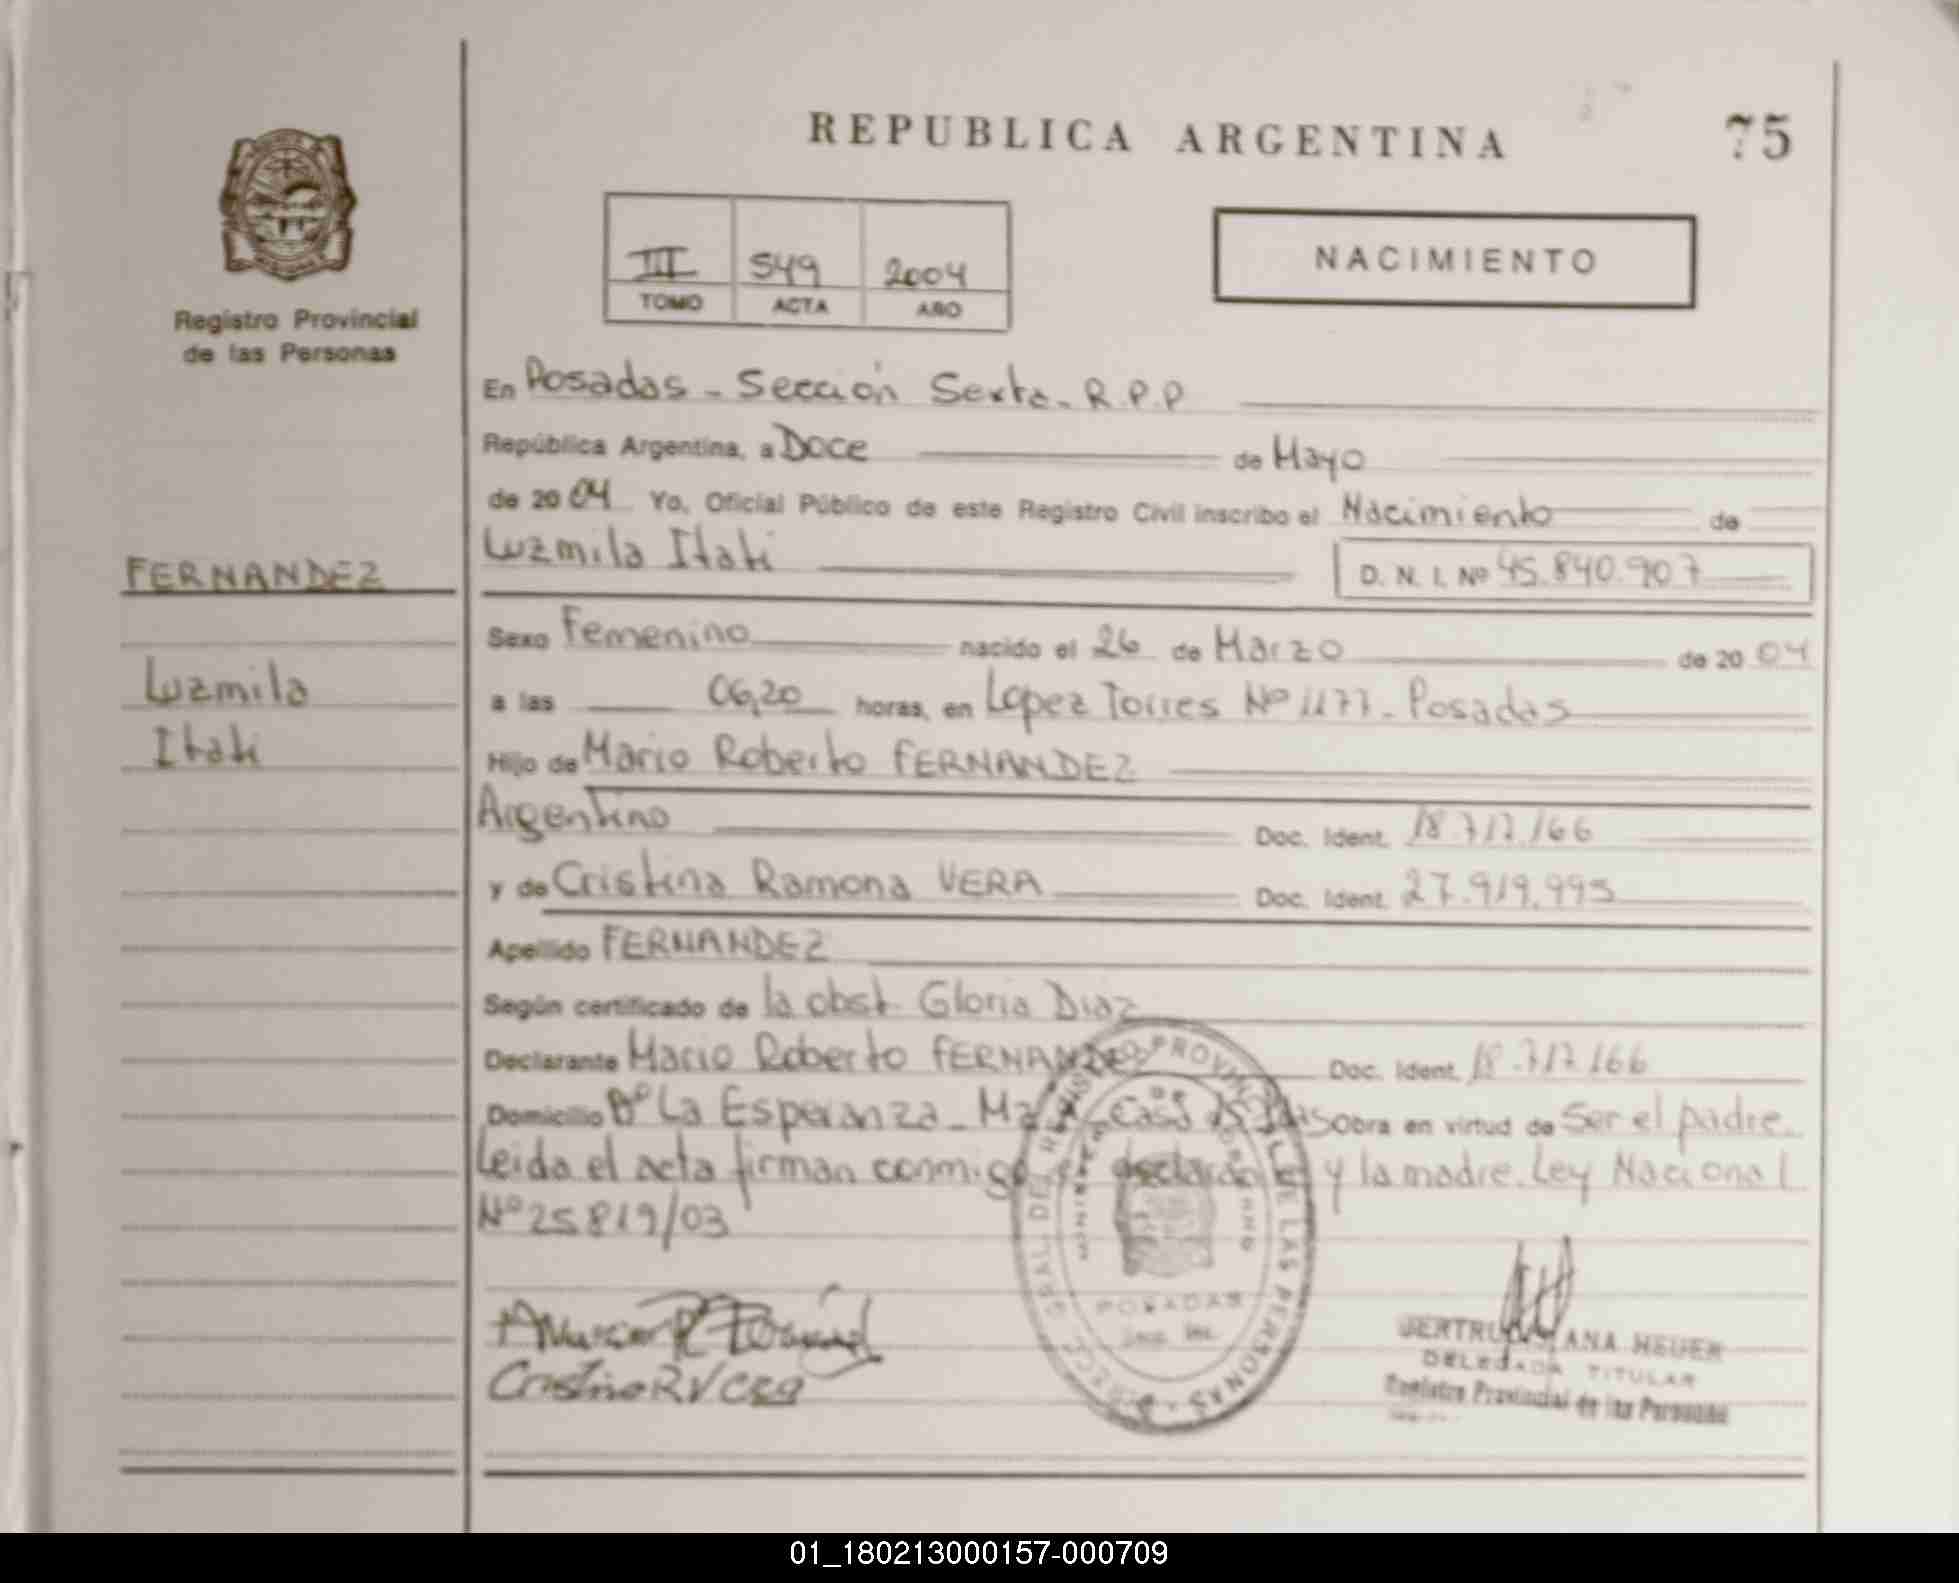 REPUBLICA ARGENTINA
75
III 549 2004
TOMO ACTA AÑO
NACIMIENTO
Registro Provincial
de las Personas
En Posadas - Sección Sexta - R.P.P
República Argentina, a Doce de Mayo
de 2004 Yo, Oficial Público de este Registro Civil inscribo el Nacimiento de
Luzmila Itati D. N. I. Nº 45.840.907
FERNANDEZ
Luzmila
Itati
Sexo Femenino nacido el 26 de Marzo de 2004
a las 06,20 horas, en Lopez Torres Nº 1177 - Posadas
Hijo de Mario Roberto FERNANDEZ
Argentino Doc. Ident. 18.717.166
y de Cristina Ramona VERA Doc. Ident. 27.919.995
Apellido FERNANDEZ
Según certificado de la obst. Gloria Diaz
Declarante Mario Roberto FERNANDEZ Doc. Ident. 18.717.166
Domicilio Bº La Esperanza - Obra en virtud de Ser el padre.
Leida el acta firman conmigo declarante y la madre. Ley Nacional
Nº 25819/03
Cristina R Vera
DIRECC. GRAL. DEL REGISTRO PROVINCIAL DE LAS PERSONAS
POSADAS
GERTRUDIS ANA HEUER
DELEGADA TITULAR
Registro Provincial de las Personas
01_180213000157-000709